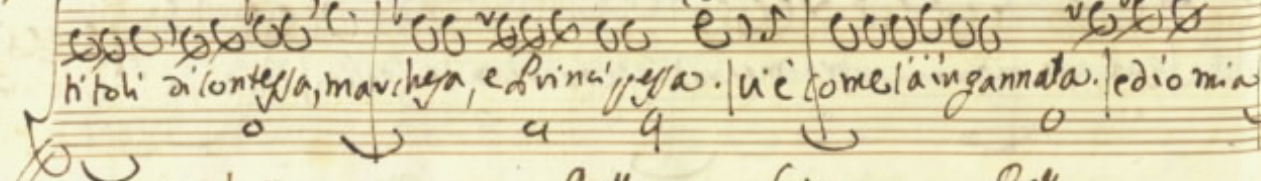 titoli di contessa, marchesa, e Principessa. | ui è come l'à ingannata. | ed io mia